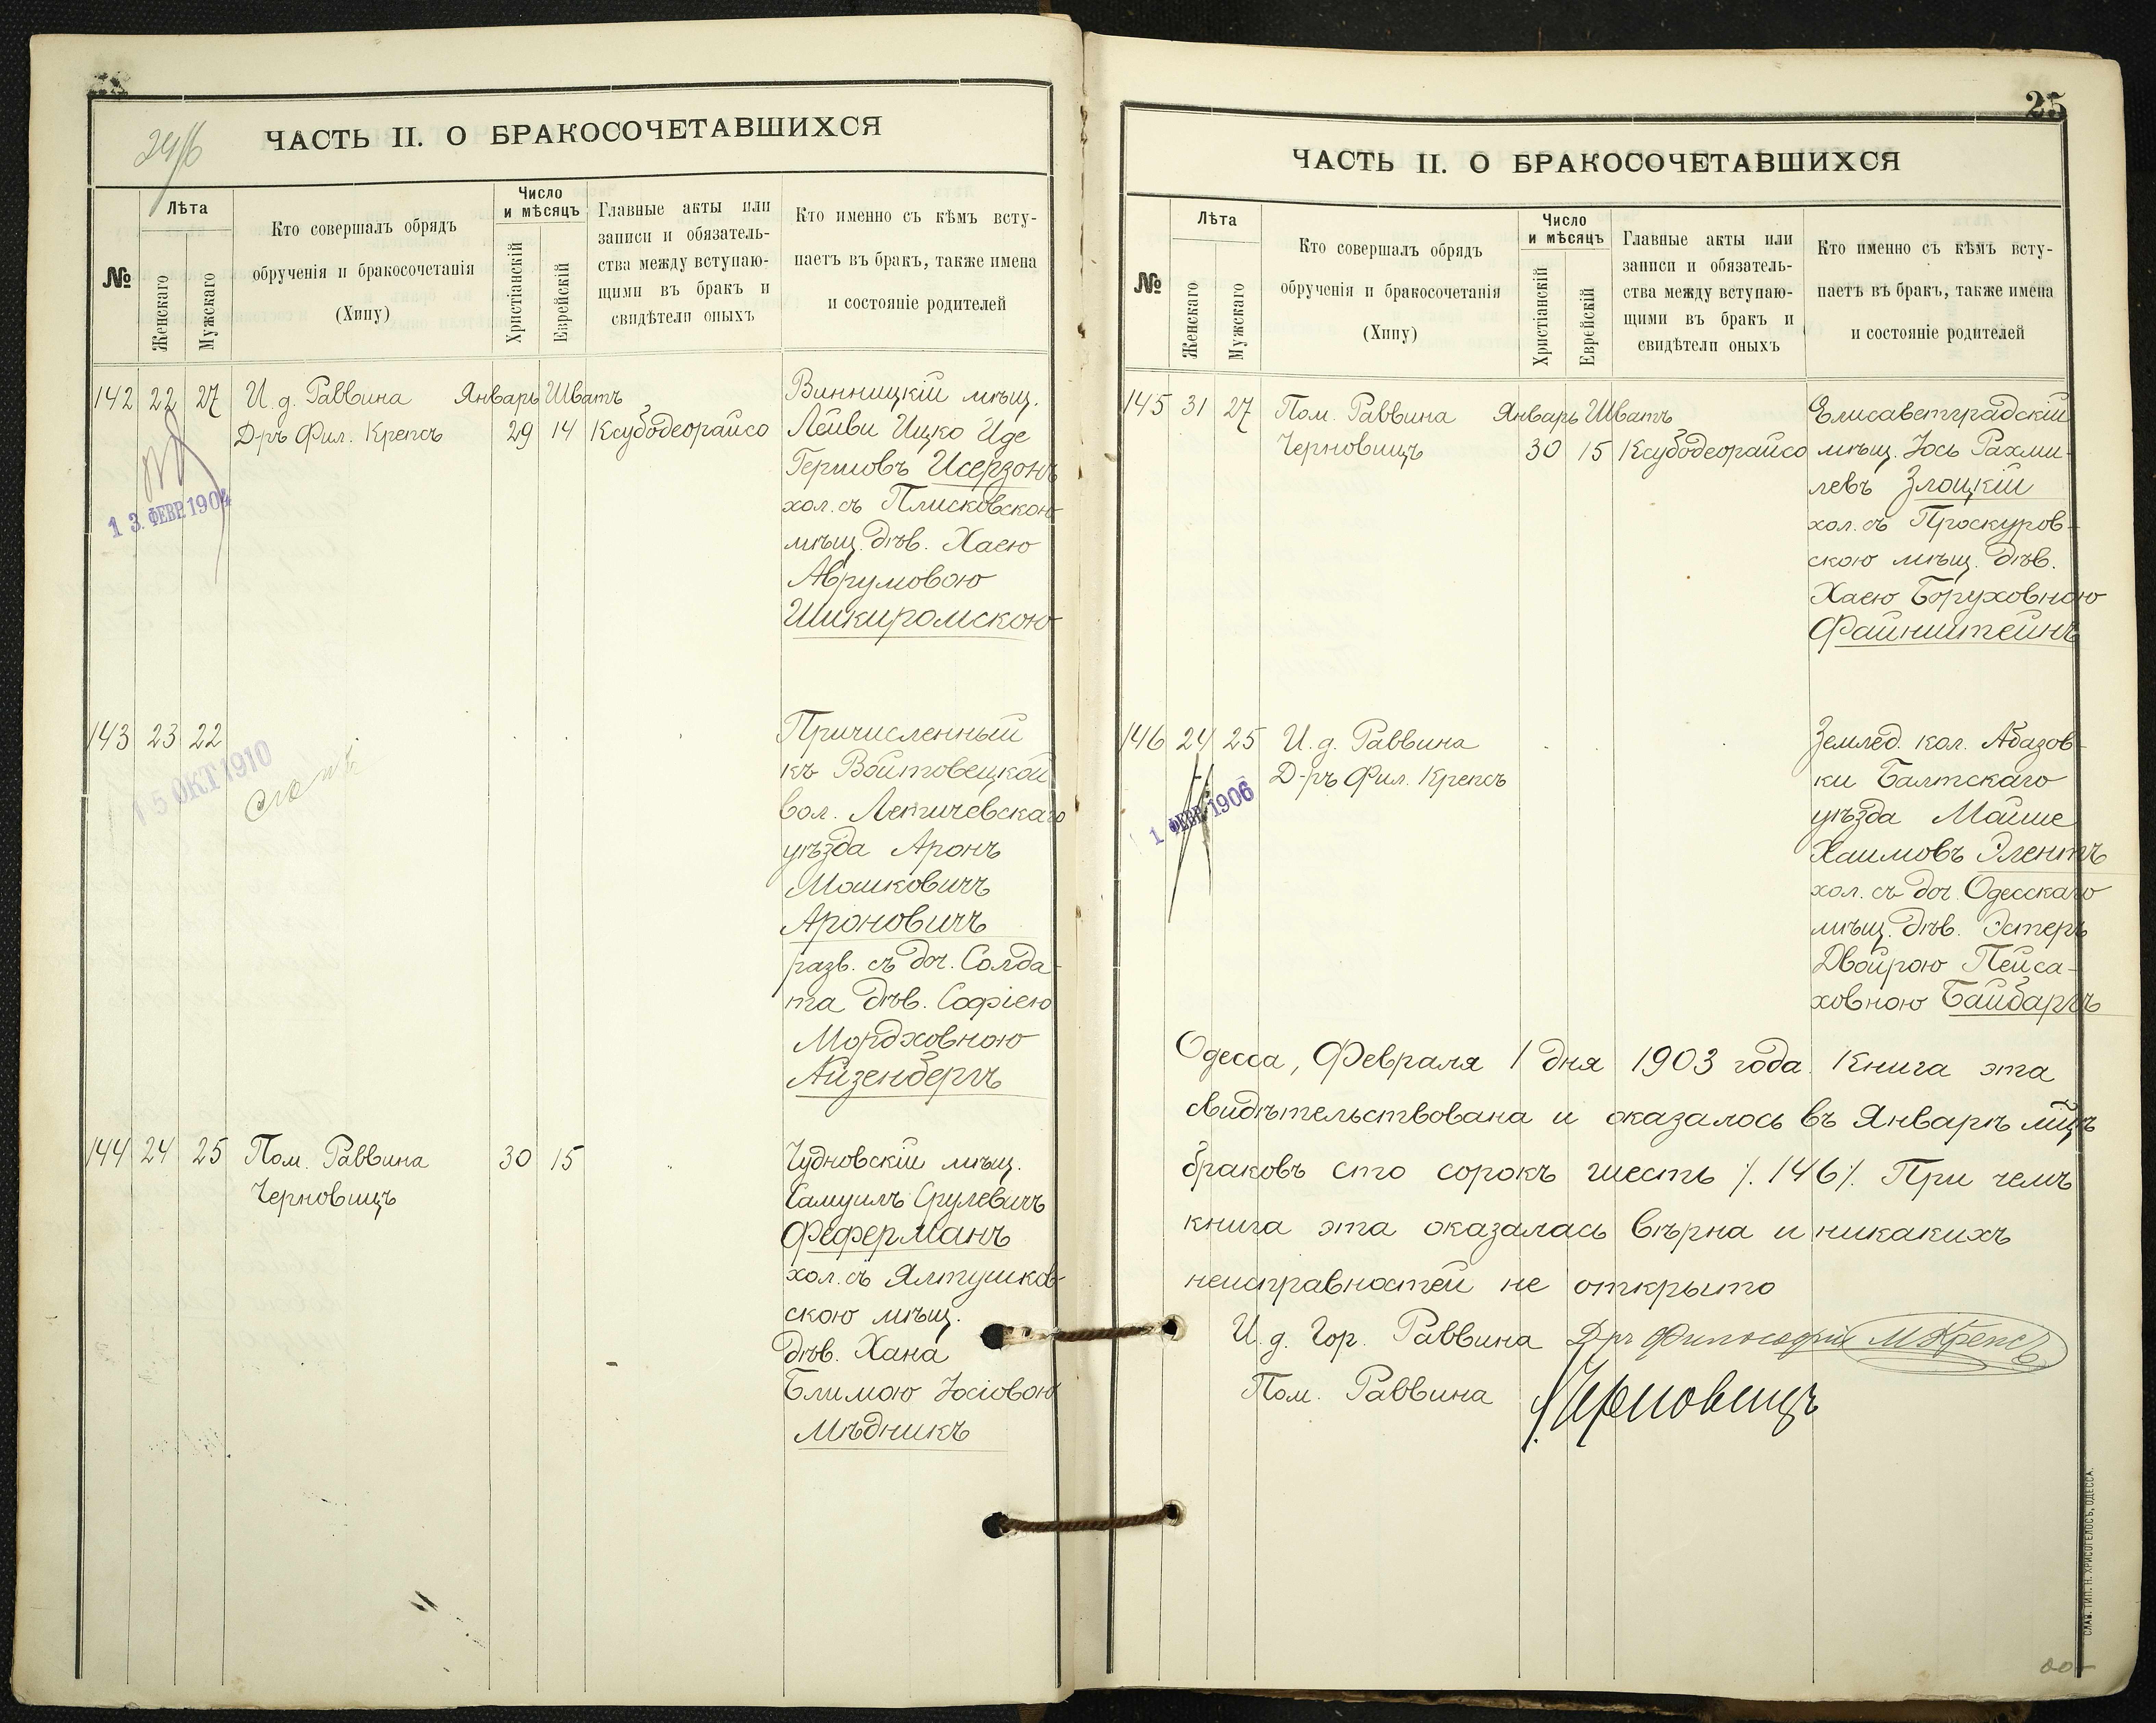 ЧАСТЬ II. О БРАКОСОЧЕТАВШИХСЯ
№
Лѣта
Женскаго
Мужскаго
Кто совершалъ обрядъ
обрученія и бракосочетанія
(Хипу)
Число
и мѣсяцъ
Христіанскій
Еврейскій
Главные акты или
записи и обязатель-
ства между вступаю-
щими въ бракъ и
свидѣтели оныхъ
Кто именно съ кѣмъ всту-
паетъ въ бракъ, также имена
и состояніе родителей
142 22 27 И. д. Раввина Январь Шватъ
Д-ръ Фил. Крепсъ 29 14 Ксубодеорайсо
Винницкій мѣщ.
Лейви Ицко Иде
Гершовъ Исерзонъ
хол. съ Плисковскою
мѣщ. дѣв. Хаею
Аврумовою
Шикиромскою
13 ФЕВР. 1904
143 23 22
Причисленный
къ Войтовецкой
вол. Летичевскаго
уѣзда Аронъ
Мошковичъ
Ароновичъ
разв. съ доч. Солда-
та дѣв. Софіею
Мордховною
Айзенбергъ
15 ОКТ 1910
144 24 25 Пом. Раввина 30 15
Черновицъ
Чудновскій мѣщ.
Самуилъ Срулевичъ
Феферманъ
хол. съ Ялтушков-
скою мѣщ.
дѣв. Хана
Блимою Іосіовою
Мѣдникъ
25
ЧАСТЬ II. О БРАКОСОЧЕТАВШИХСЯ
№
Лѣта
Женскаго
Мужскаго
Кто совершалъ обрядъ
обрученія и бракосочетанія
(Хипу)
Число
и мѣсяцъ
Христіанскій
Еврейскій
Главные акты или
записи и обязатель-
ства между вступаю-
щими въ бракъ и
свидѣтели оныхъ
Кто именно съ кѣмъ всту-
паетъ въ бракъ, также имена
и состояніе родителей
145 31 27 Пом. Раввина Январь Шватъ
Черновицъ 30 15 Ксубодеорайсо
Елисаветградскій
мѣщ. Іось Рахми-
левъ Злоцкій
хол. съ Проскуров-
скою мѣщ. дѣв.
Хаею Боруховною
Файнштейнъ
146 24 25 И. д. Раввина
Д-ръ Фил. Крепсъ
Землед. кол. Абазов-
ки Балтскаго
уѣзда Мойше
Хаимовъ Элентъ
хол. съ доч. Одесскаго
мѣщ. дѣв. Эстеръ
Двойрою Пейса-
ховною Байбаргъ
1 ФЕВР. 1906
Одесса, Февраля 1 дня 1903 года. Книга эта
свидѣтельствована и оказалось въ Январѣ мцѣ
браковъ сто сорокъ шесть /. 146 /. При чемъ
книга эта оказалась вѣрна и никакихъ
неисправностей не открыто
И. д. Гор. Раввина Д-ръ Философіи М Крепсъ
Пом. Раввина Черновицъ
СЛАВ. ТИП. Н. ХРИСОГЕЛОСЪ, ОДЕССА.